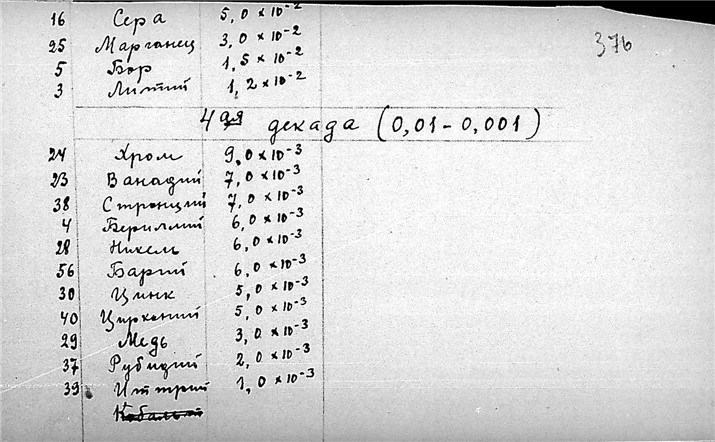 16 Сера 5,0 × 10⁻²
376
25 Марганец 3,0 × 10⁻²
5 Бор 1,5 × 10⁻²
3 Литий 1,2 × 10⁻²
4ая декада (0,01 - 0,001)
24 Хром 9,0 × 10⁻³
23 Ванадий 7,0 × 10⁻³
38 Стронций 7,0 × 10⁻³
4 Бериллий 6,0 × 10⁻³
28 Никель 6,0 × 10⁻³
56 Барий 6,0 × 10⁻³
30 Цинк 5,0 × 10⁻³
40 Цирконий 5,0 × 10⁻³
29 Медь 3,0 × 10⁻³
37 Рубидий 2,0 × 10⁻³
39 Иттрий 1,0 × 10⁻³
Кобальт